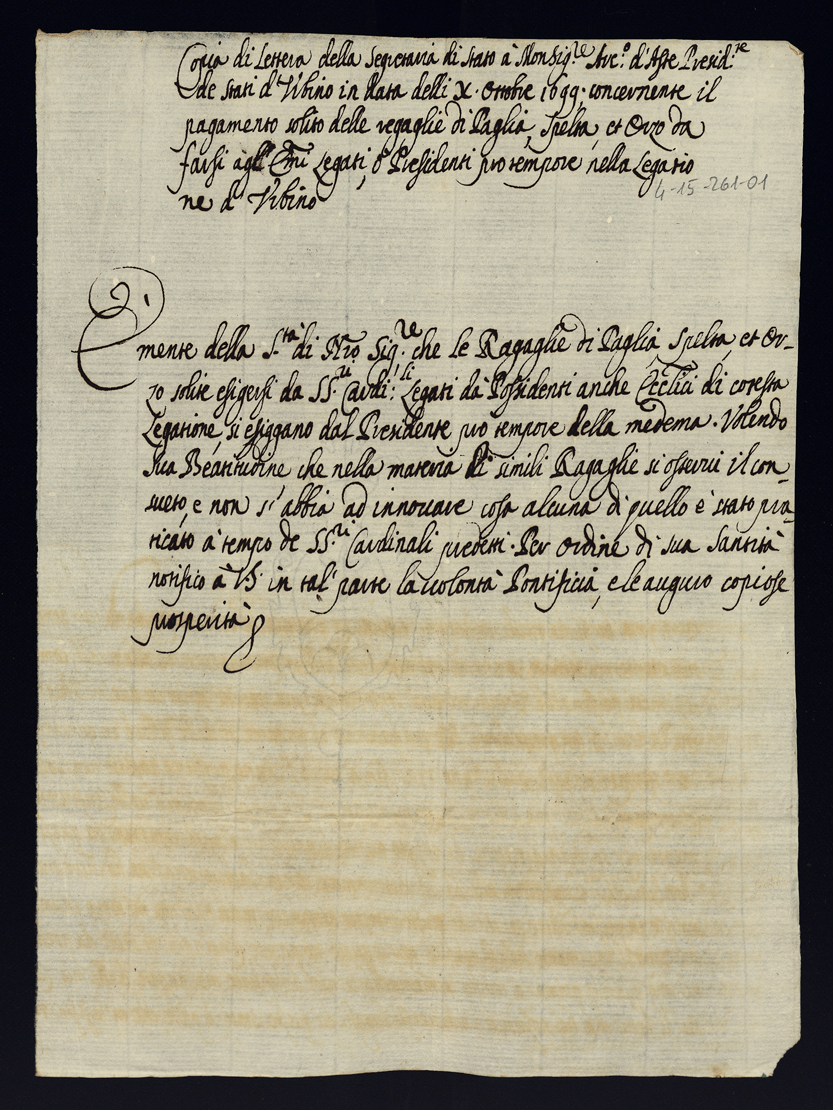 Copia di Lettera della Segretaria di stato à Monsig.re Arc.o d'Aste Presid.te
de stati d'Urbino in data delli X. Ottobre 1699. concernente il
pagamento solito delle regaglie di Paglia, Spelta, et Orzo da
farsi agl'Emi Legati, ò Presidenti pro tempore nella Legatio
ne d'Urbino
4-15-261-01
È mente della S.tà di Nro Sig.re che le Ragaglie di Paglia, Spelta, et Or-
zo solite esigersi da SS.ri Card.li Legati da Possidenti anche Ecclici di cotesta
Legatione, si esiggano dal Presidente pro tempore della medema. Volendo
Sua Beatitudine che nella materia di simili Ragaglie si osservi il con-
sueto, e non s'abbia ad innovare cosa alcuna di quello è stato pra-
ticato à tempo de SS.ri Cardinali predetti. Per ordine di sua Santità
notifico à V.S. in tal parte la volontà Pontificia, e le auguro copiose
prosperità